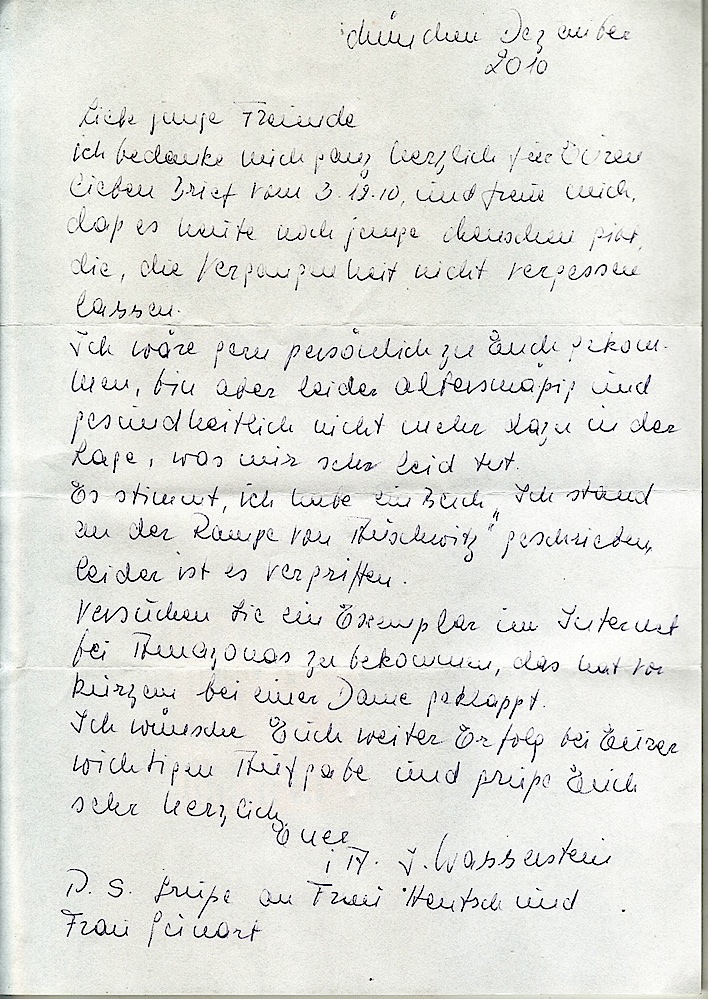 München Dezember
2010
Liebe junge Freunde
ich bedanke mich ganz herzlich für Euren
lieben Brief vom 3.12.10, und freue mich,
daß es heute noch junge Menschen gibt,
die, die Vergangenheit nicht vergessen
lassen.
Ich wäre gern persönlich zu Euch gekom-
men, bin aber leider altersmäßig und
gesundheitlich nicht mehr dazu in der
Lage, was mir sehr leid tut.
Es stimmt, ich habe ein Buch „Ich stand
an der Rampe von Auschwitz" geschrieben,
leider ist es vergriffen.
Versuchen Sie ein Exemplar im Internet
bei Amazonas zu bekommen, das hat vor
kurzem bei einer Dame geklappt.
Ich wünsche Euch weiter Erfolg bei Eurer
wichtigen Aufgabe und grüße Euch
sehr herzlich
Euer
i A. J. Wasserstein
P. S. Grüße an Frau Hentsch und
Frau